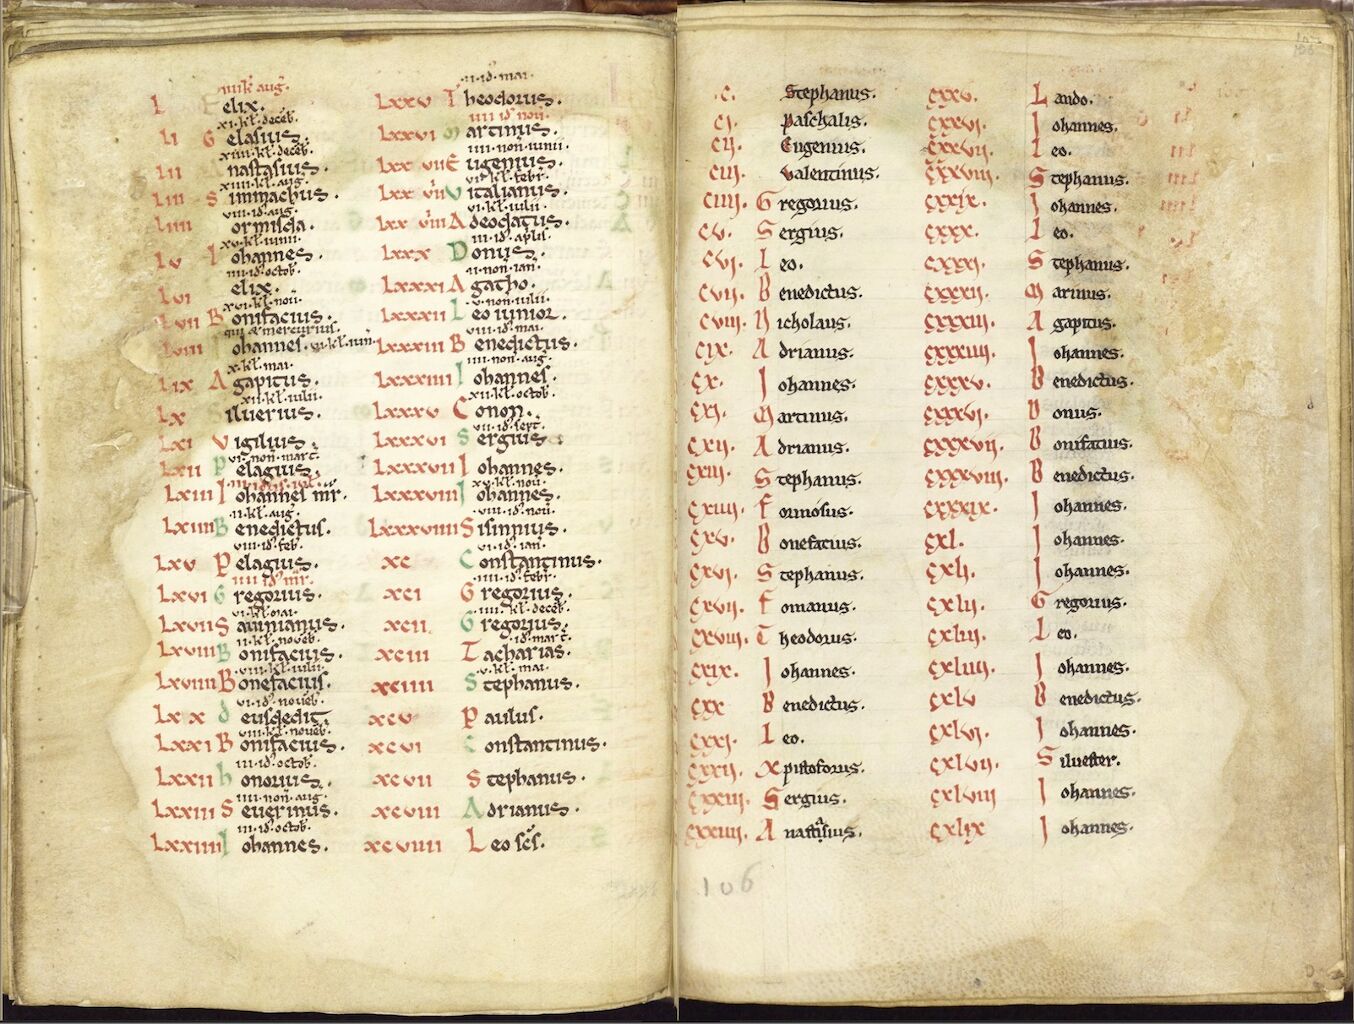 iiii kł aug̃.
L Felix.
xi·kł·deceƀ.
Li Gelasius.
xiii·kł·deceƀ.
Lii Anastasius.
xiiii·kł·aug.
Liii Simmachus.
viii·id·aug.
Liiii ormisda.
xv·kł·iunii
Lv Iohannes.
iiii·id·octoƀ.
Lvi elix.
xvi·kł·nou
Lvii Bonifacius.
qui & mercurius.
Lviii Iohannes. vi·kł·iun
x·kł·mai.
Lix Agapitus.
xii·kł·iulii
Lx Siluerius.
Lxi Vigilius.
vi·non·marc̃.
Lxii Pelagius.
Lxiii Iohannes mr̃.
ii·kł·aug.
Lxiiii Benedictus.
viii·id·feƀ.
Lxv Pelagius.
iiii id mr̃.
Lxvi Gregorius.
vi·kł·mai.
Lxvii Sauinianus.
ii·kł·noueƀ.
Lxviii Bonifacius.
viii·kł·iulii
Lxviiii Bonefacius.
vi·id·noueƀ.
Lxx deusdedit.
viii·kł·noueƀ.
Lxxi Bonifacius.
iii·id·octoƀ.
Lxxii honorius.
iiii·non·aug.
Lxxiii Seuerinus.
iii·id·octoƀ.
Lxxiiii Iohannes.
ii·id·mai.
Lxxv Theodorus.
iiii id noũ.
Lxxvi Martinus.
iiii·non·iunii
Lxxvii Eugenius.
vi kł febr̃.
Lxxviii Vitalianus.
vi·kł·iulii
Lxxviiii Adeodatus.
iii·id·aplis.
Lxxx Donus.
ii·non·ian̄.
Lxxxi Agatho.
v·non·iulii
Lxxxii Leo iunior.
viii·id·mai.
Lxxxiii Benedictus.
iiii·non·aug.
Lxxxiiii Iohannes.
xii·kł·octoƀ.
Lxxxv Conon.
vii·id·sept.
Lxxxvi Sergius.
Lxxxvii Iohannes.
xv·kł·nou
Lxxxviii Iohannes.
viii·id·nou.
Lxxxviiii Sisinnius.
vi·id·ian̄.
xc Constantinus.
iiii·id·febr̃.
xci Gregorius.
iiii·kł·deceƀ.
xcii Gregorius.
id·marc̃.
xciii Zacharias.
v·kł·mai.
xciiii Stephanus.
xcv Paulus.
xcvi Constantinus.
xcvii Stephanus.
xcviii Adrianus.
xcviiii Leo sc̃s.
c. Stephanus.
ci. Paschalis.
cii. Eugenius.
ciii. Valentinus.
ciiii. Gregorius.
cv. Sergius.
cvi. Leo.
cvii. Benedictus.
cviii. Nicholaus.
cix. Adrianus.
cx. Iohannes.
cxi. Martinus.
cxii. Adrianus.
cxiii. Stephanus.
cxiiii. Formosus.
cxv. Bonefatius.
cxvi. Stephanus.
cxvii. Fomanus.
cxviii. Theodorus.
cxix. Iohannes.
cxx Benedictus.
cxxi. Leo.
cxxii. Xpistoforus.
cxxiii. Sergius.
cxxiiii. Anastasius.
cxxv. Lando.
cxxvi. Iohannes.
cxxvii. Leo.
cxxviii. Stephanus.
cxxix. Iohannes.
cxxx. Leo.
cxxxi. Stephanus.
cxxxii. Marinus.
cxxxiii. Agapitus.
cxxxiiii. Iohannes.
cxxxv. Benedictus.
cxxxvi. Donus.
cxxxvii. Bonifatius.
cxxxviii. Benedictus.
cxxxix. Iohannes.
cxl. Iohannes.
cxli. Iohannes.
cxlii. Gregorius.
cxliii. Leo.
cxliiii. Iohannes.
cxlv Benedictus.
cxlvi. Iohannes.
cxlvii. Siluester.
cxlviii Iohannes.
cxlix Iohannes.
106